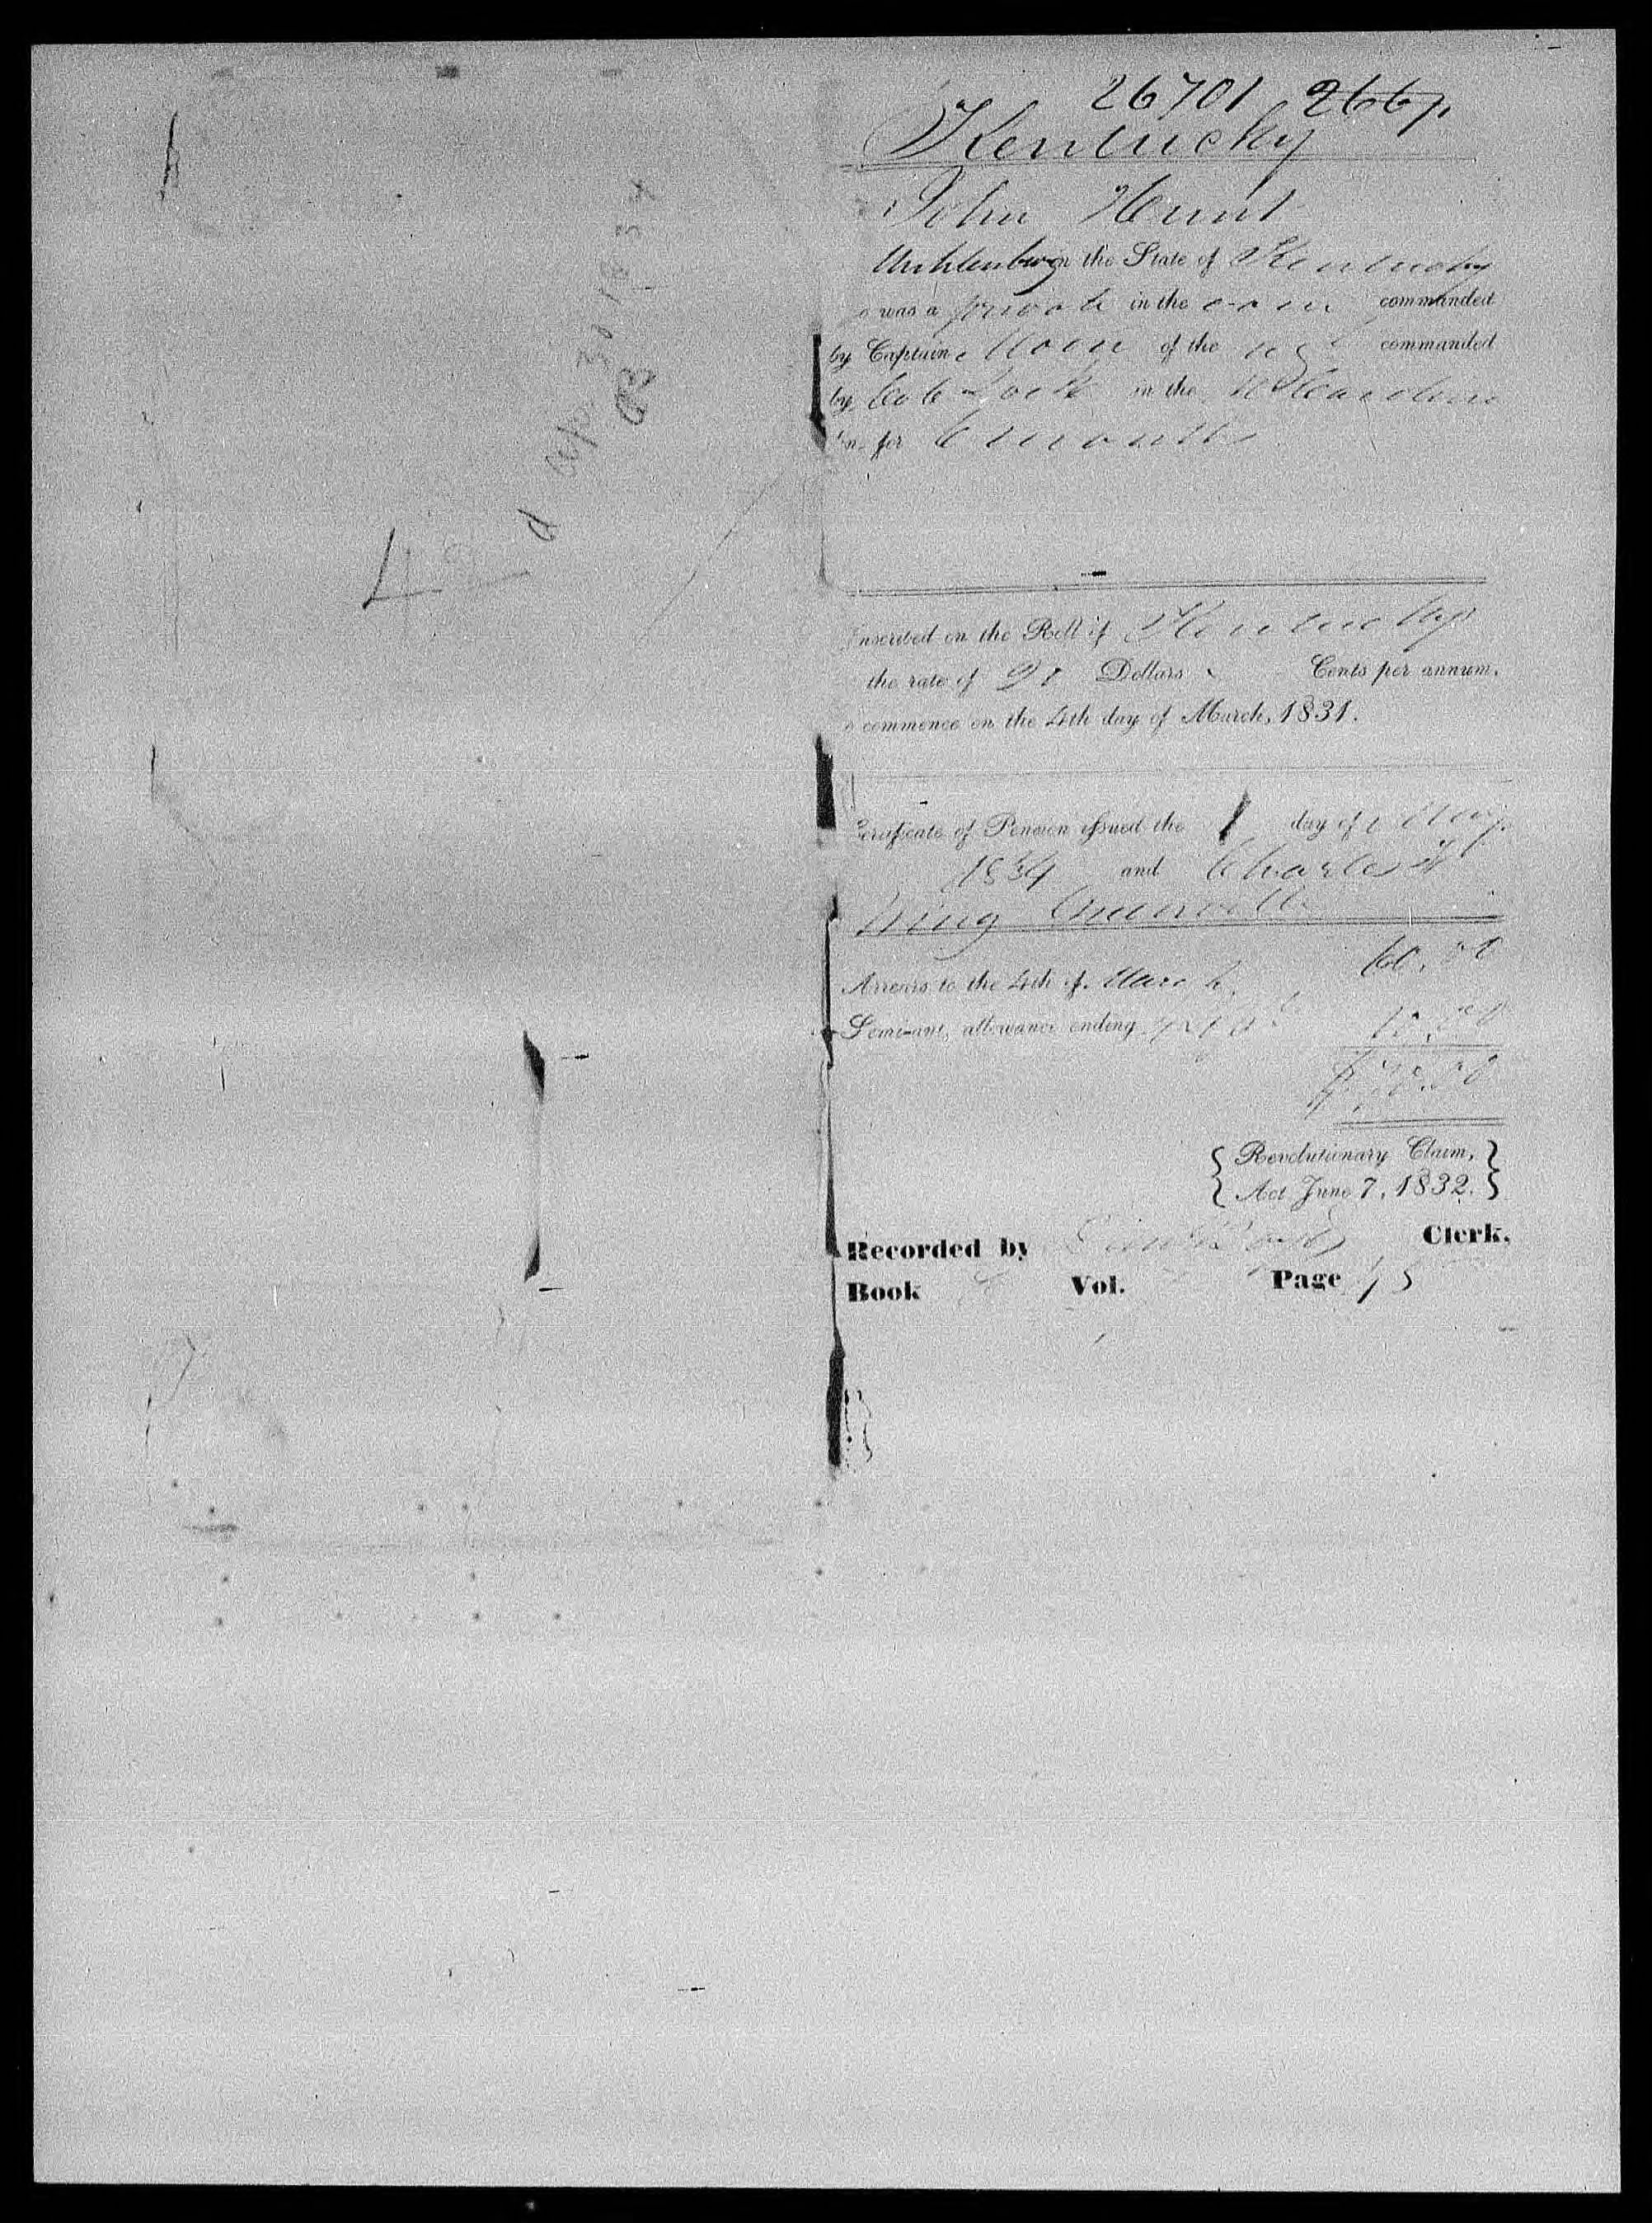 26701
Kentucky
John Hunt
Muhlenberg in the State of Kentucky
o was a private in the com commanded
by Captain Moore of the regt commanded
by Col Lock in the N Carolina
for 6 months
Inscribed on the Roll of Kentucky
the rate of 20 Dollars Cents per annum,
o commence on the 4th day of March, 1831.
Certificate of Pension issued the 1 day of May
1834 and Charles F
Wing Greenville
Arrears to the 4th of March 60.00
Semi-anl. allowance ending 10.00
$70.00
Revolutionary Claim,
Act June 7, 1832.
Recorded by Clerk,
Book Vol. Page 75
42